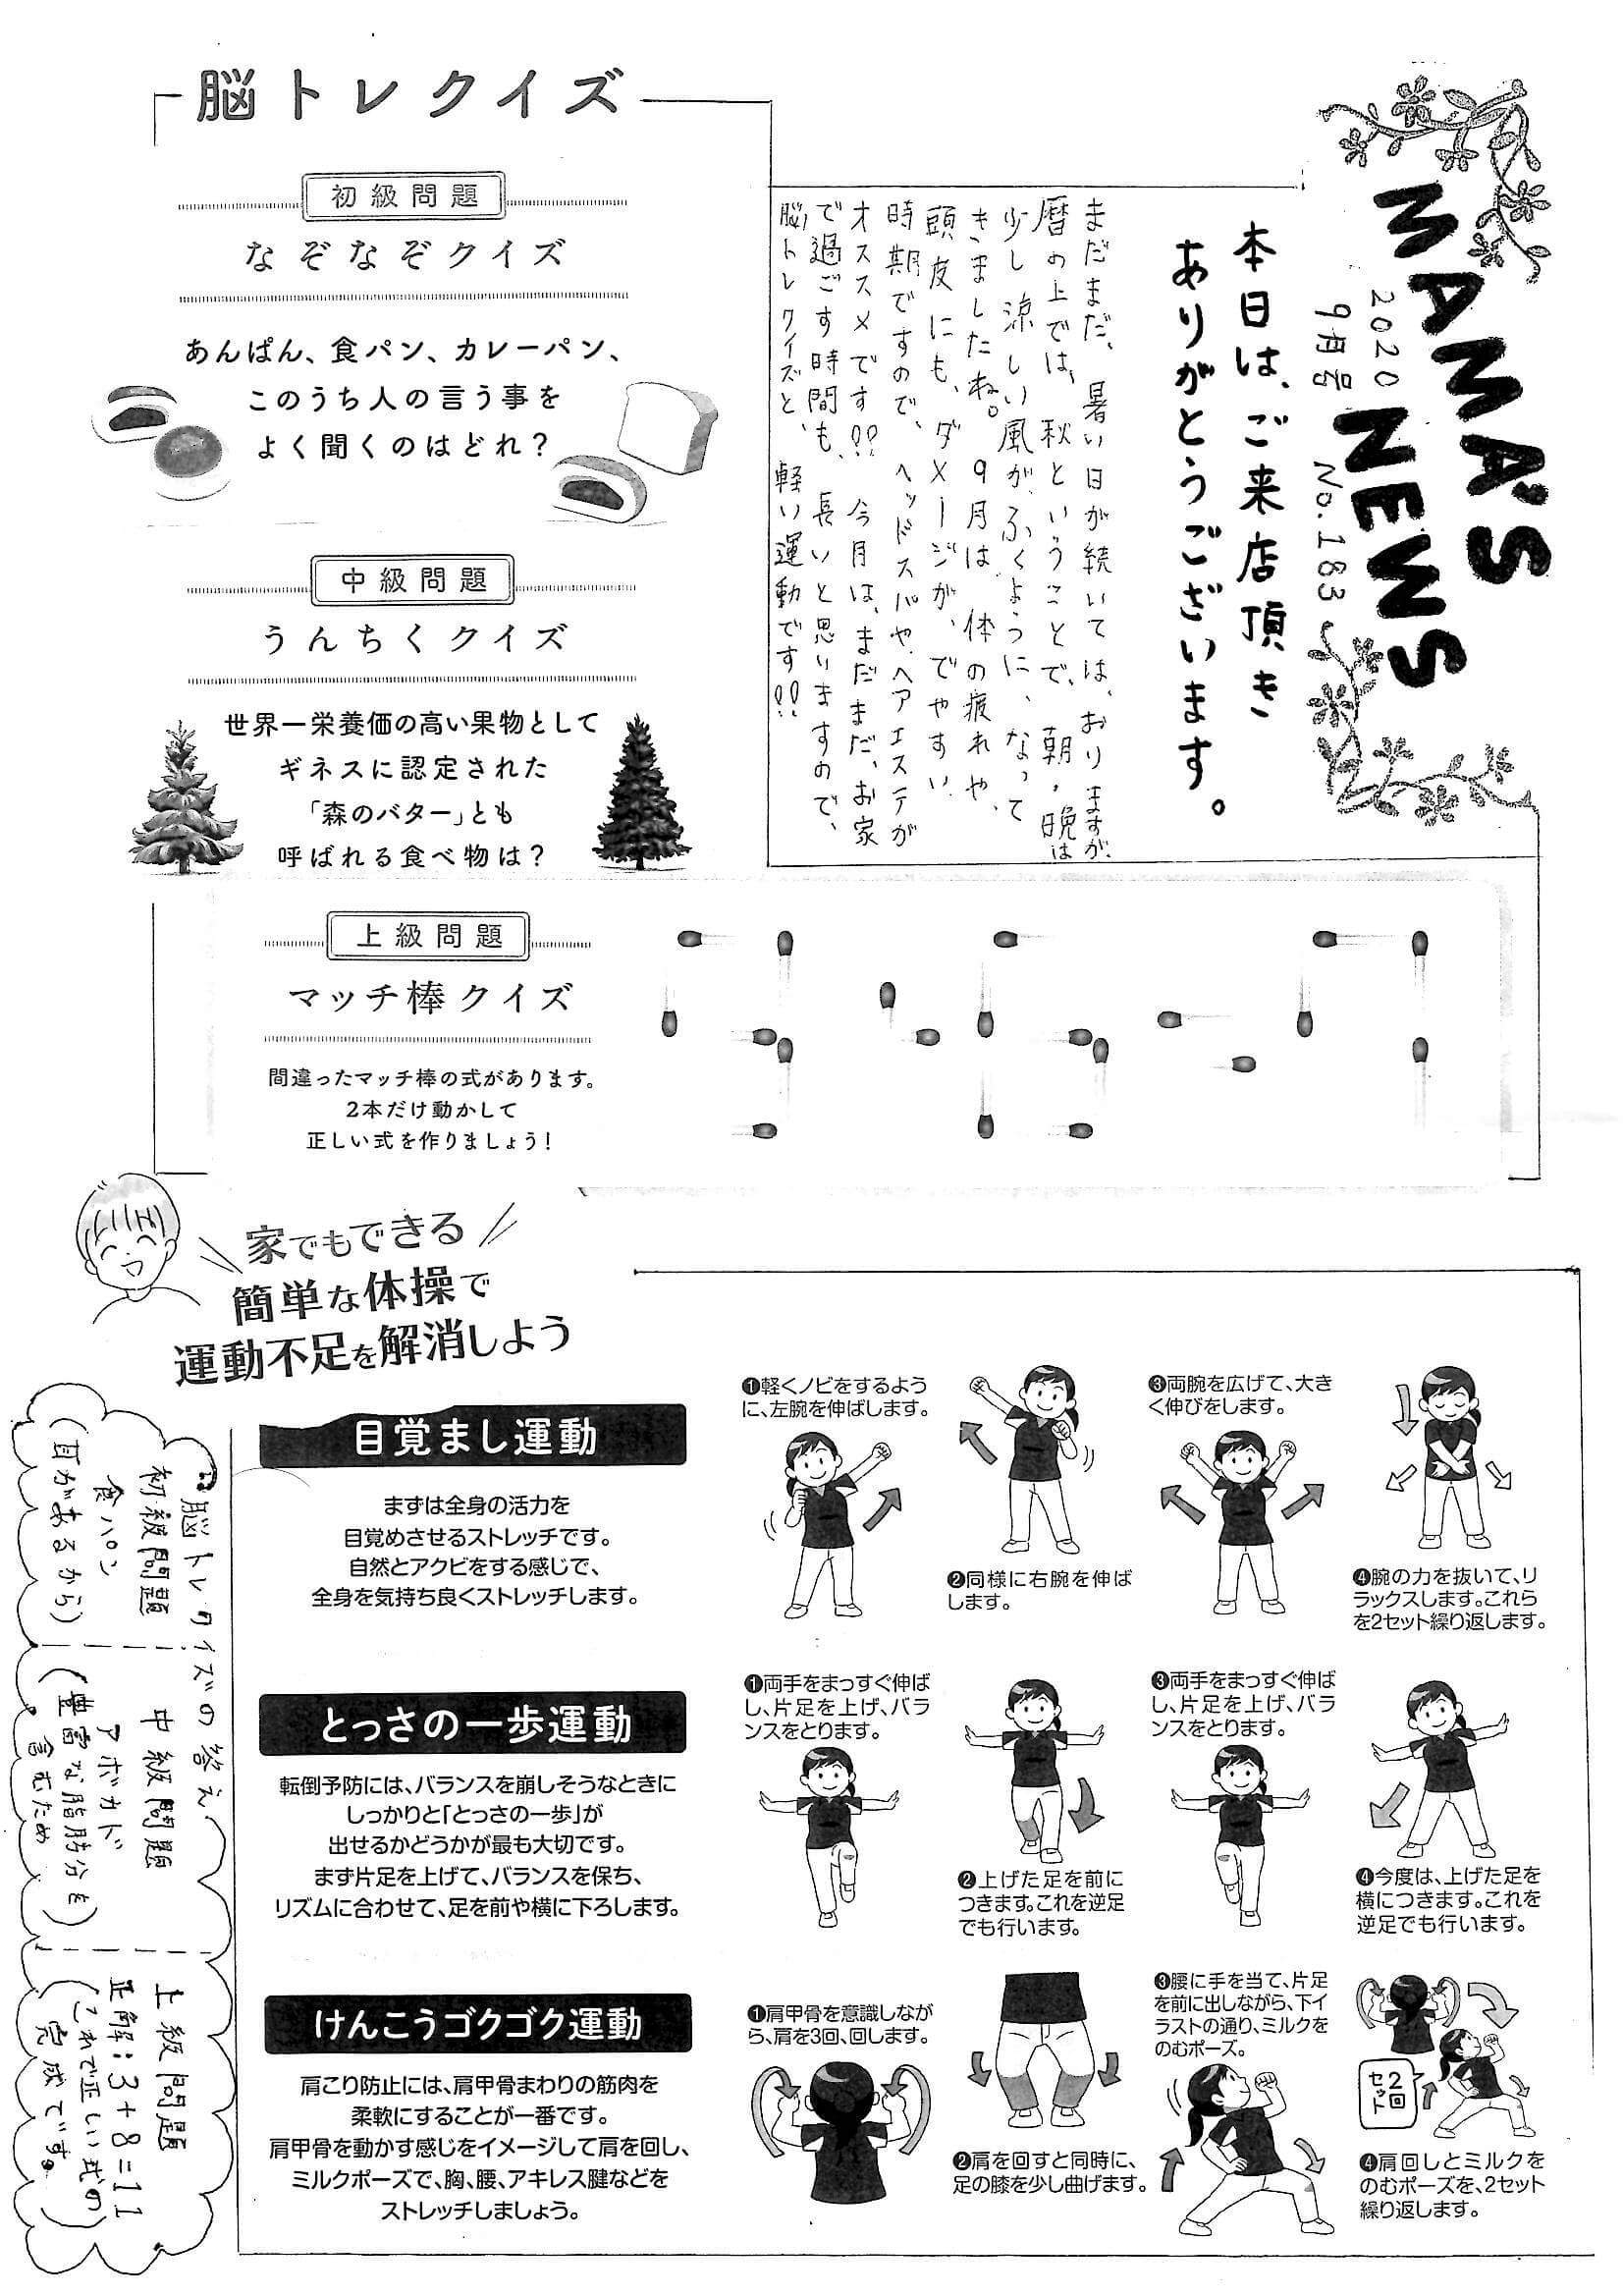 MAMA'S
NEWS
2020
9月号
No.183
本日は、ご来店頂き
ありがとうございます。
まだまだ、暑い日が続いては、おりますが、
暦の上では、秋ということで、朝・晩は
少し涼しい風が、ふくように、なって
きましたね。9月は体の疲れや、
頭皮にも、ダメージが、でやすい
時期ですので、ヘッドスパや、ヘアエステが
オススメです!!今月は、まだまだ、お家
で過ごす時間も、長いと思いますので、
脳トレクイズと、軽い運動です!!
脳トレクイズ
初級問題
なぞなぞクイズ
あんぱん、食パン、カレーパン、
このうち人の言う事を
よく聞くのはどれ?
中級問題
うんちくクイズ
世界一栄養価の高い果物として
ギネスに認定された
「森のバター」とも
呼ばれる食べ物は?
上級問題
マッチ棒クイズ
間違ったマッチ棒の式があります。
2本だけ動かして
正しい式を作りましょう!
家でもできる
簡単な体操で
運動不足を解消しよう
目覚まし運動
まずは全身の活力を
目覚めさせるストレッチです。
自然とアクビをする感じで、
全身を気持ち良くストレッチします。
❶軽くノビをするよう
に、左腕を伸ばします。
❷同様に右腕を伸ば
します。
❸両腕を広げて、大き
く伸びをします。
❹腕の力を抜いて、リ
ラックスします。これら
を2セット繰り返します。
とっさの一歩運動
転倒予防には、バランスを崩しそうなときに
しっかりと「とっさの一歩」が
出せるかどうかが最も大切です。
まず片足を上げて、バランスを保ち、
リズムに合わせて、足を前や横に下ろします。
❶両手をまっすぐ伸ば
し、片足を上げ、バラ
ンスをとります。
❷上げた足を前に
つきます。これを逆足
でも行います。
❸両手をまっすぐ伸ば
し、片足を上げ、バラ
ンスをとります。
❹今度は、上げた足を
横につきます。これを
逆足でも行います。
けんこうゴクゴク運動
肩こり防止には、肩甲骨まわりの筋肉を
柔軟にすることが一番です。
肩甲骨を動かす感じをイメージして肩を回し、
ミルクポーズで、胸、腰、アキレス腱などを
ストレッチしましょう。
❶肩甲骨を意識しなが
ら、肩を3回、回します。
❷肩を回すと同時に、
足の膝を少し曲げます。
❸腰に手を当て、片足
を前に出しながら、下イ
ラストの通り、ミルクを
のむポーズ。
2回
セット
❹肩回しとミルクを
のむポーズを、2セット
繰り返します。
脳トレクイズの答え
初級問題
食パン
(耳があるから)
中級問題
アボカド
(豊富な脂肪分を
含むため)
上級問題
正解:3+8=11
(これで正しい式の
完成です。)